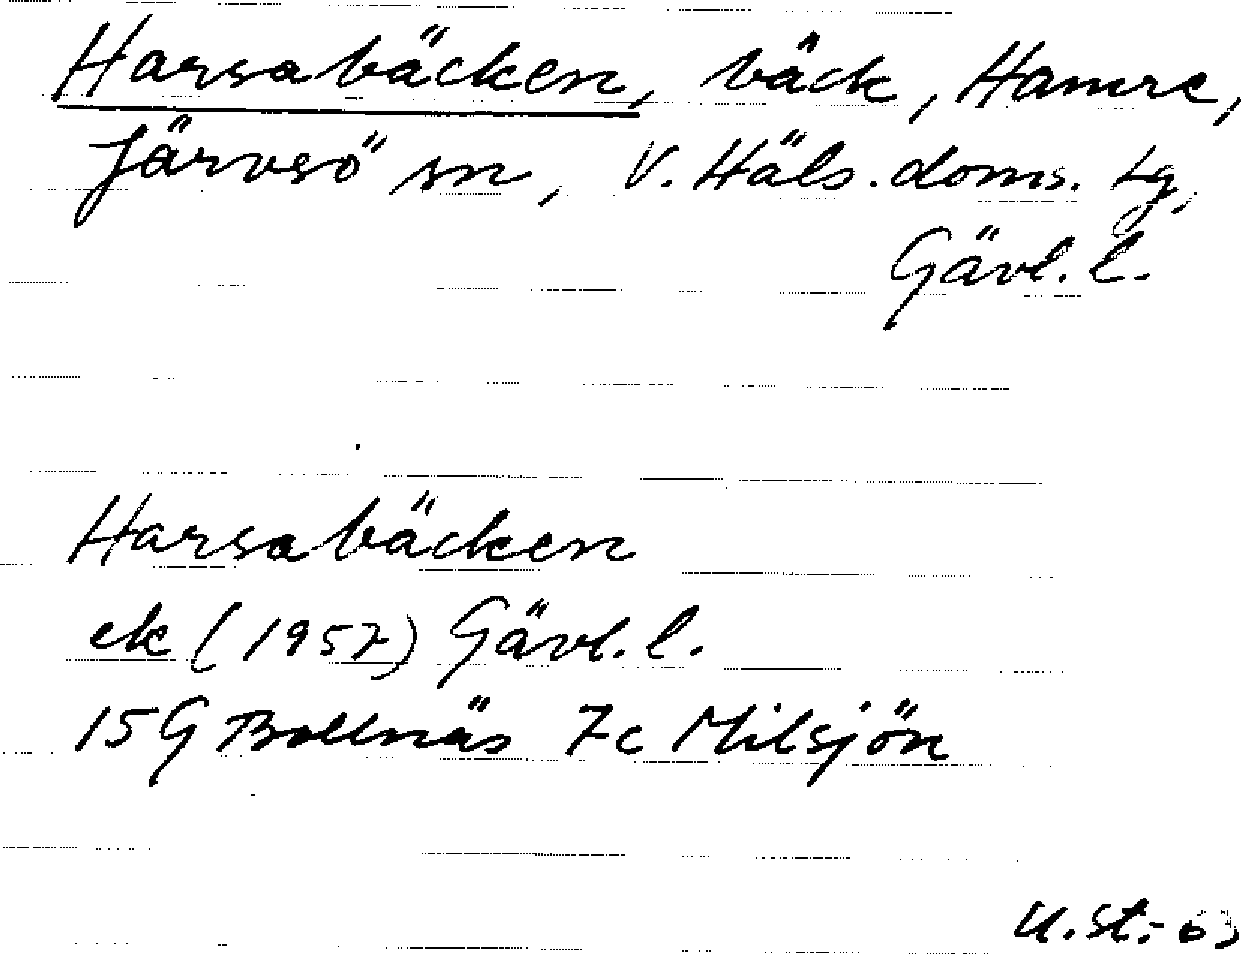 Harsabäcken, bäck, Hamre,
Järvsö sn, V. Häls. doms. tg,
Gävl. l.
Harsabäcken
ek (1957) Gävl. l.
15G Bollnäs 7c Milsjön
U. St. - 63